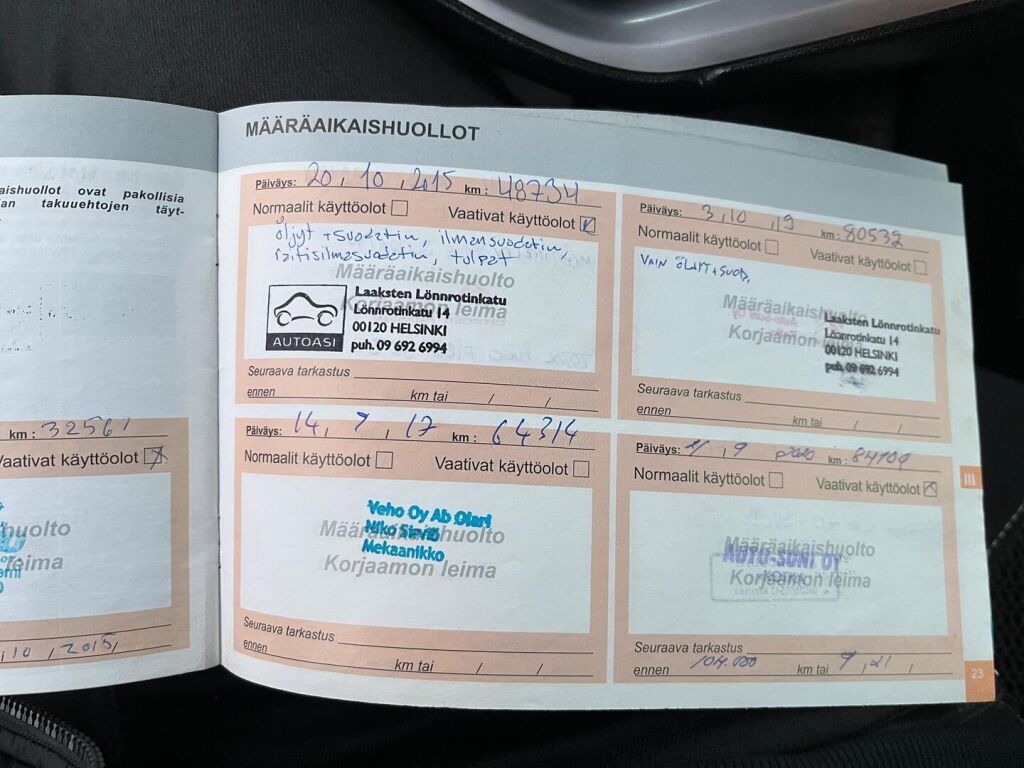 aishuollot ovat pakollisia
an takuuehtojen täyt-
km : 32561
Vaativat käyttöolot
huolto
leima
10 , 2015,
MÄÄRÄAIKAISHUOLLOT
Päiväys: 20 , 10 , 2015 km : 48734
Normaalit käyttöolot Vaativat käyttöolot
öljyt + suodatin, ilmansuodatin,
raitisilmasuodatin, tulpat
Määräaikaishuolto
Korjaamon leima
AUTOASI
Laaksten Lönnrotinkatu
Lönnrotinkatu 14
00120 HELSINKI
puh. 09 692 6994
Seuraava tarkastus
ennen km tai / /
Päiväys: 3 , 10 , 19 km : 80532
Normaalit käyttöolot Vaativat käyttöolot
VAIN ÖLJYT + SUOD.
Määräaikaishuolto
Korjaamon leima
Laaksten Lönnrotinkatu
Lönnrotinkatu 14
00120 HELSINKI
puh. 09 692 6994
Seuraava tarkastus
ennen km tai / /
Päiväys: 14 , 7 , 17 km : 64314
Normaalit käyttöolot Vaativat käyttöolot
Veho Oy Ab Olari
Niko
Mekaanikko
Määräaikaishuolto
Korjaamon leima
Seuraava tarkastus
ennen km tai / /
Päiväys: , 9 2020 km : 84109
Normaalit käyttöolot Vaativat käyttöolot
Määräaikaishuolto
AUTO-SUNI OY
KOTKA
Korjaamon leima
Seuraava tarkastus
ennen 104.000 km tai 9 / 21 /
III
23